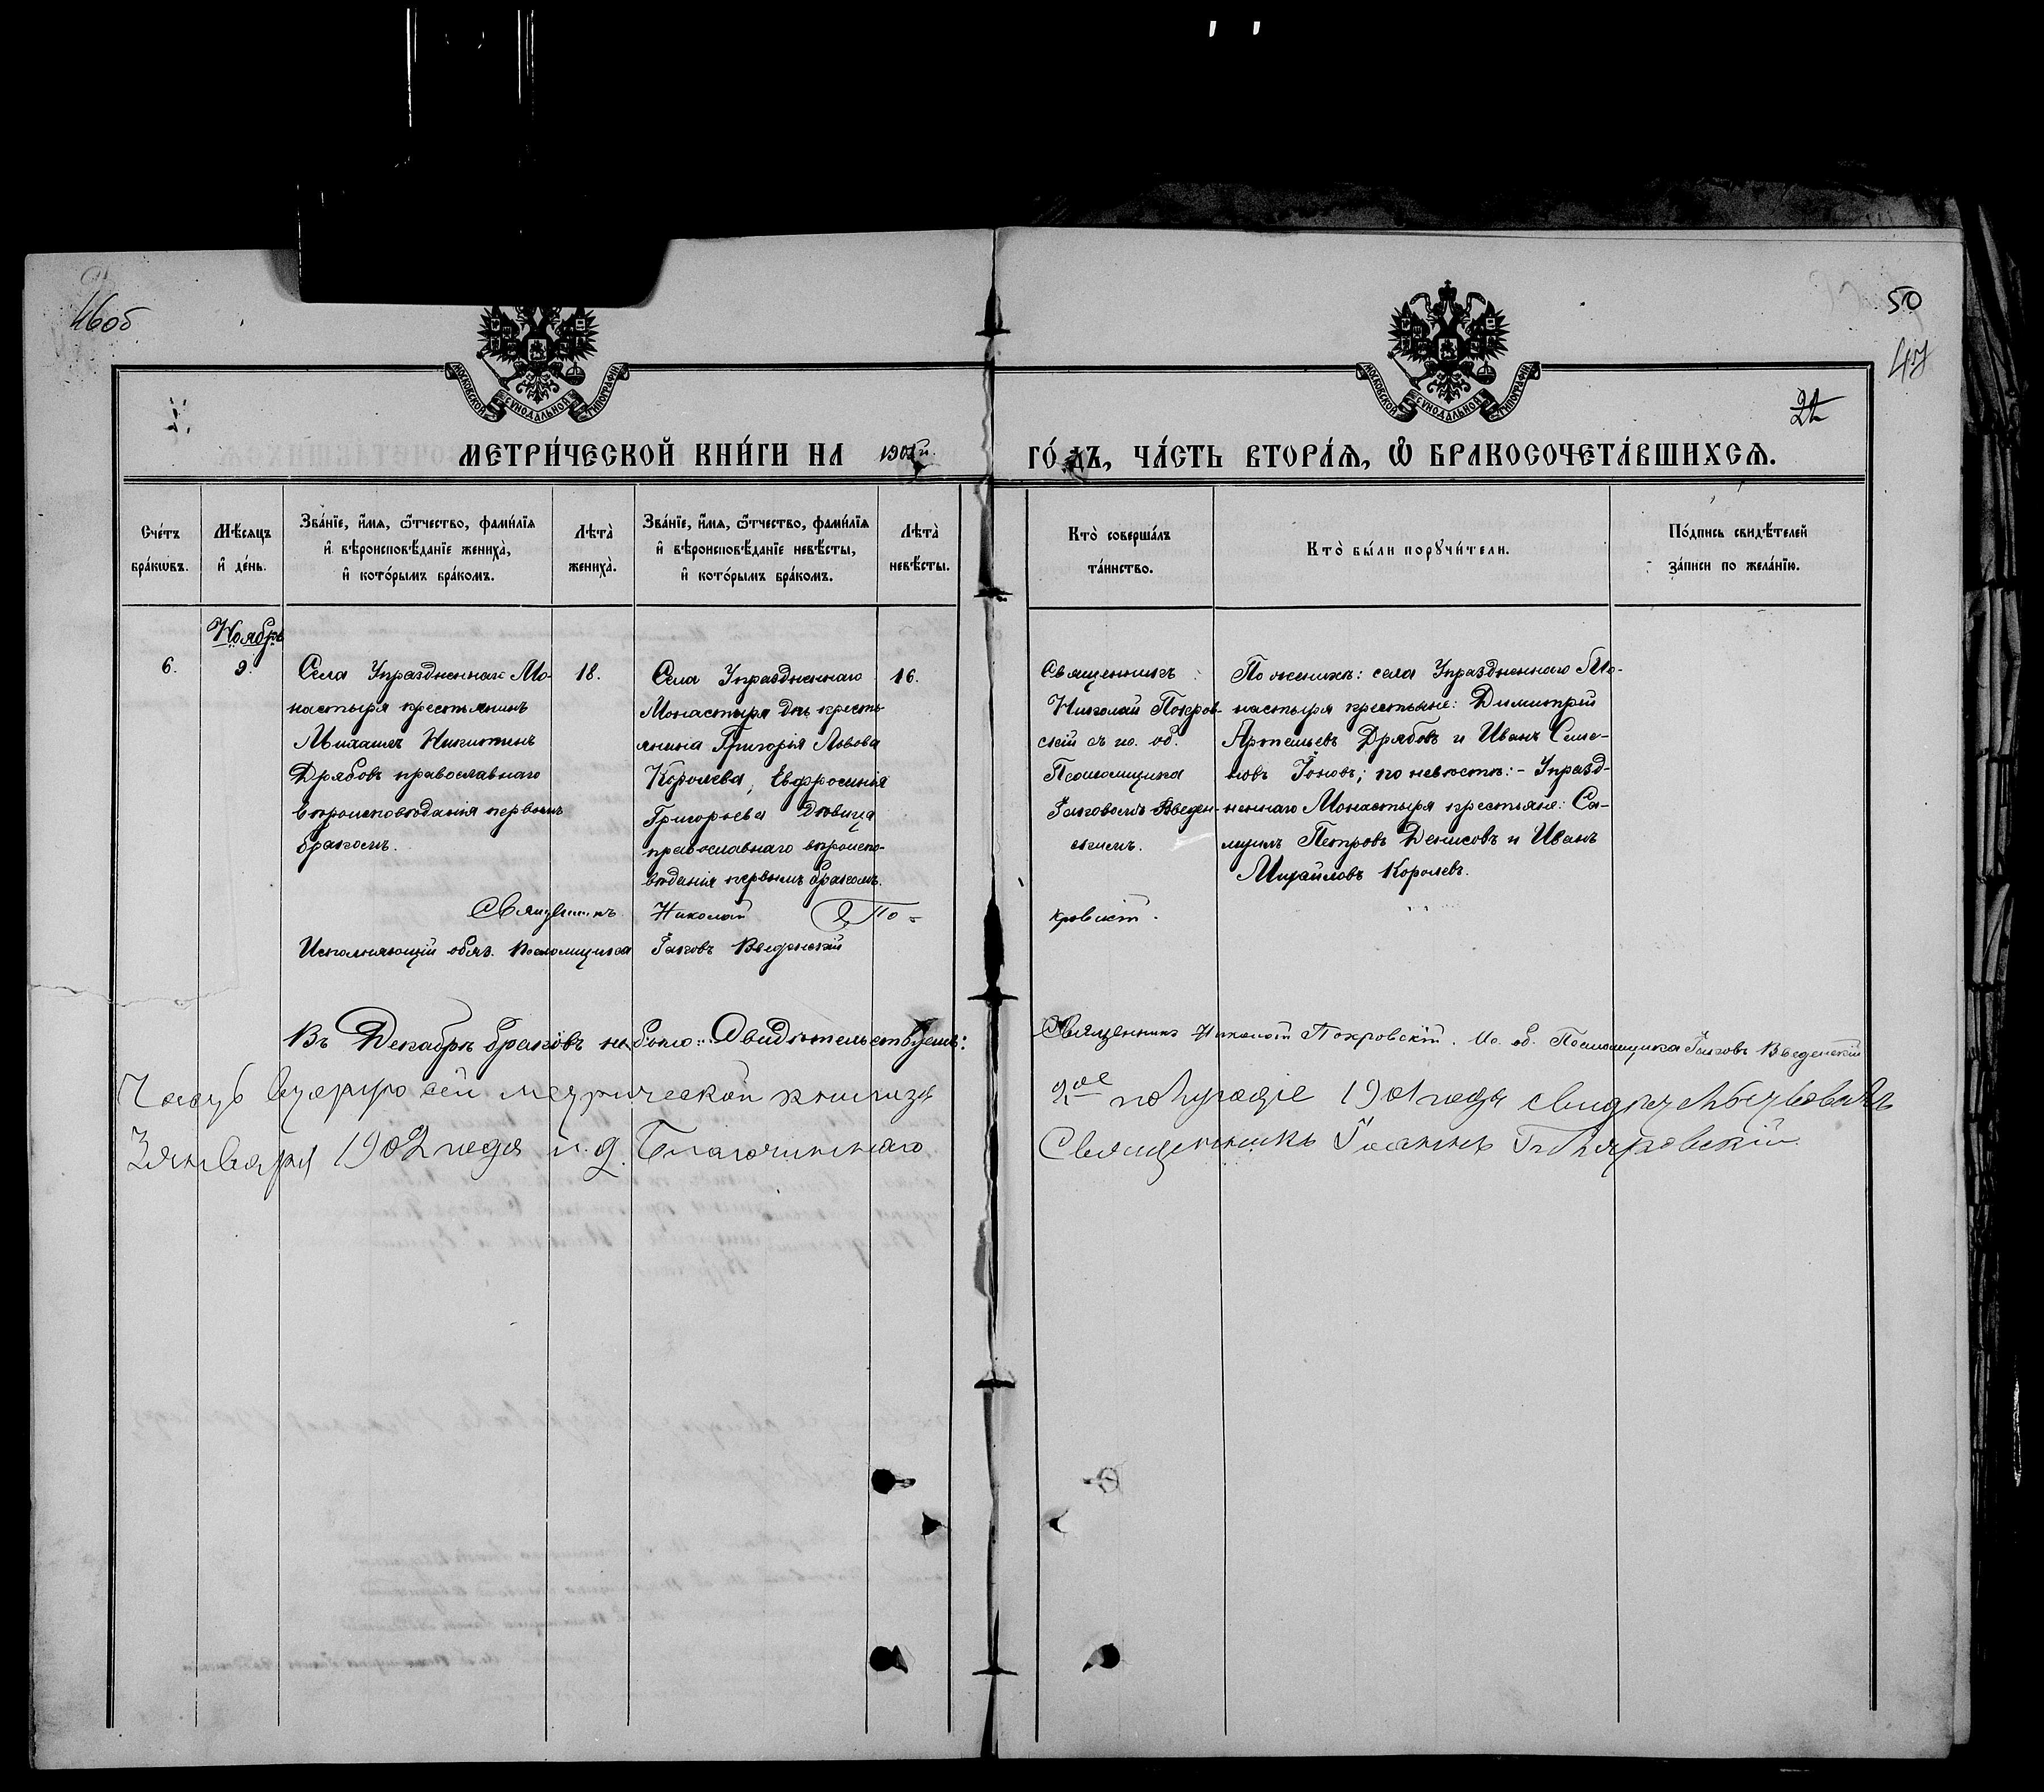 46об
50
47
22
МОСКОВСКОЙ СУНОДАЛЬНОЙ ТИПОГРАФІИ
МОСКОВСКОЙ СУНОДАЛЬНОЙ ТИПОГРАФІИ
МЕТРИ́ЧЕСКОЙ КНИ́ГИ НА 1901й.
ГО́ДЪ, ЧА́СТЬ ВТОРА́Ѧ, Ѡ҆ БРАКОСОЧЕТА́ВШИХСѦ.
Сче́тъ
бра́кѡвъ.
Мѣ́сяцъ
и҆ де́нь.
Зва́нїе, и҆́мѧ, ѻ҆́тчество, фами́лїѧ
и҆ вѣроисповѣ́данїе жениха̀,
и҆ кото́рымъ бра́комъ.
Лѣта̀
жениха̀.
Зва́нїе, и҆́мѧ, ѻ҆́тчество, фами́лїѧ
и҆ вѣроисповѣ́данїе невѣ́сты,
и҆ кото́рымъ бра́комъ.
Лѣта̀
невѣ́сты.
Кто̀ соверша́лъ
та́инство.
Кто̀ бы́ли порꙋчи́тели.
По́дпись свидѣ́телей
за́писи по жела́нїю.
Ноябрь
6.
9.
Села Упраздненнаго Мо-
настыря крестьянинъ
Михаилъ Никитинъ
Дрябовъ православнаго
вѣроисповѣданія первымъ
бракомъ.
18.
Села Упраздненнаго
Монастыря дчь кресть
янина Григорія Львова
Королева, Евфросинія
Григорьева дѣвица
православнаго вѣроиспо-
вѣданія первымъ бракомъ.
16.
Священникъ
Николай Покров-
скій съ ис. об.
Псаломщика
Іаковомъ Введен-
скимъ.
По женихѣ: села Упраздненнаго Мо-
настыря крестьяне: Димитрій
Артемьевъ Дрябовъ и Иванъ Семе-
новъ Іоновъ; по невѣстѣ:- Упразд-
неннаго Монастыря крестьяне: Са-
муилъ Петровъ Денисовъ и Иванъ
Михайловъ Королевъ.
Священникъ Николай По-
кровскій.
Исполняющій обяз. Псаломщика Іаковъ Введенскій
Въ Декабрѣ браковъ не было. Свидѣтельствуемъ:
Священникъ Николай Покровскій. Ис. об. Псаломщика Іаковъ Введенскій
Часть вторую сей метрической книги за
2ое полугодіе 1901 года свидѣтельствовалъ
3 января 1902 года и. д. Благочиннаго
Священникъ Іоаннъ